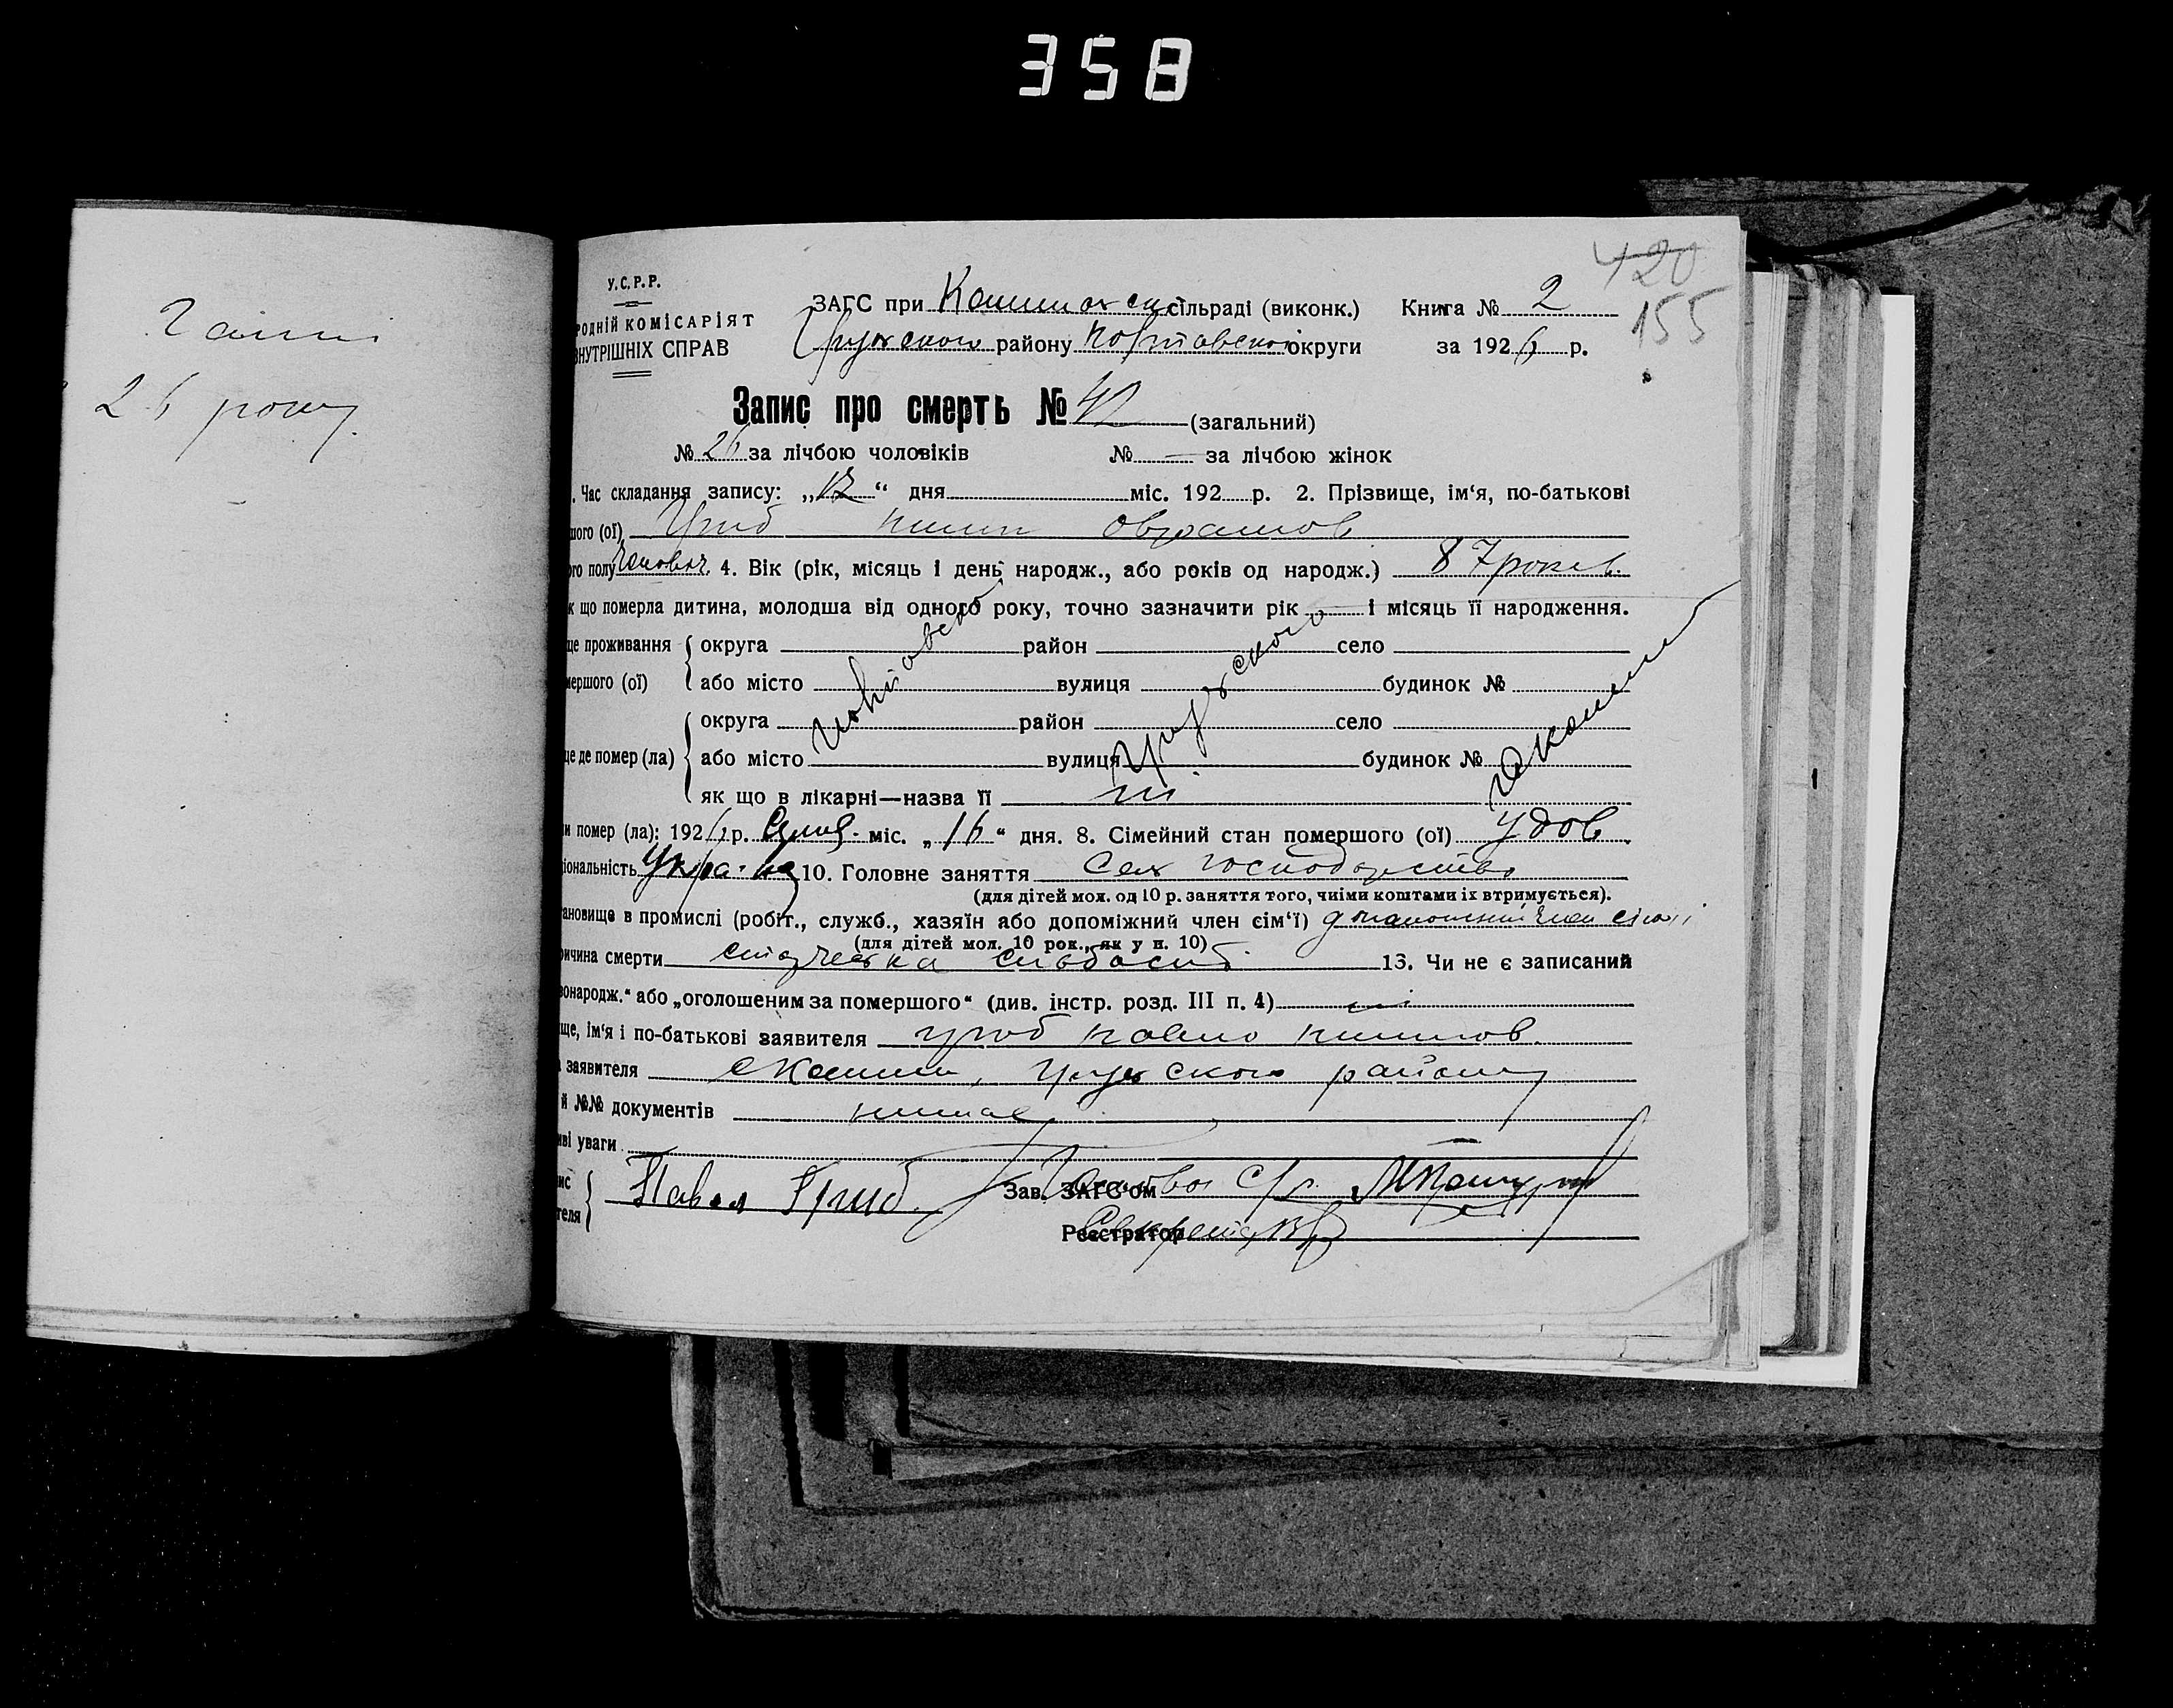 358
Гаїнші
26 року
420
155
У.С.Р.Р.
РОДНІЙ КОМІСАРІЯТ
ВНУТРІШНІХ СПРАВ
ЗАГС при сільраді (виконк.) Книга № 2
району Полтавської округи за 1926 р.
Запис про смерть № 42 (загальний)
№ 26 за лічбою чоловіків № — за лічбою жінок
. Час складання запису: „12“ дня міс. 192 р. 2. Прізвище, ім‘я, по-батькові
шого (ої) Гриб
го полу Чоловіч. 4. Вік (рік, місяць і день народж., або років од народж.) 87 років
к що померла дитина, молодша від одного року, точно зазначити рік і місяць її народження.
це проживання округа район село
мершого (ої) або місто вулиця будинок №
округа Полтавської район село
це де помер (ла) або місто вулиця будинок №
як що в лікарні—назва її ні
и помер (ла): 1926 р. міс. „16“ дня. 8. Сімейний стан помершого (ої) удов
ціональність Укра-ка 10. Головне заняття Сел господарство
(для дітей мол. од 10 р. заняття того, чиїми коштами їх втримується).
тановище в промислі (робіт., служб., хазяїн або допоміжний член сім‘ї) член сімьї
(для дітей мол. 10 рок., як у п. 10)
ричина смерти старческа слабость 13. Чи не є записаний
вонародж.“ або „оголошеним за помершого“ (див. інстр. розд. III п. 4) ні
ще, ім‘я і по-батькові заявителя гриб павло
а заявителя району
й №№ документів немає
иві уваги —
ис
теля Павел Гриб Зав. ЗАГС‘ом Голова С/р
Реєстратор Секретар